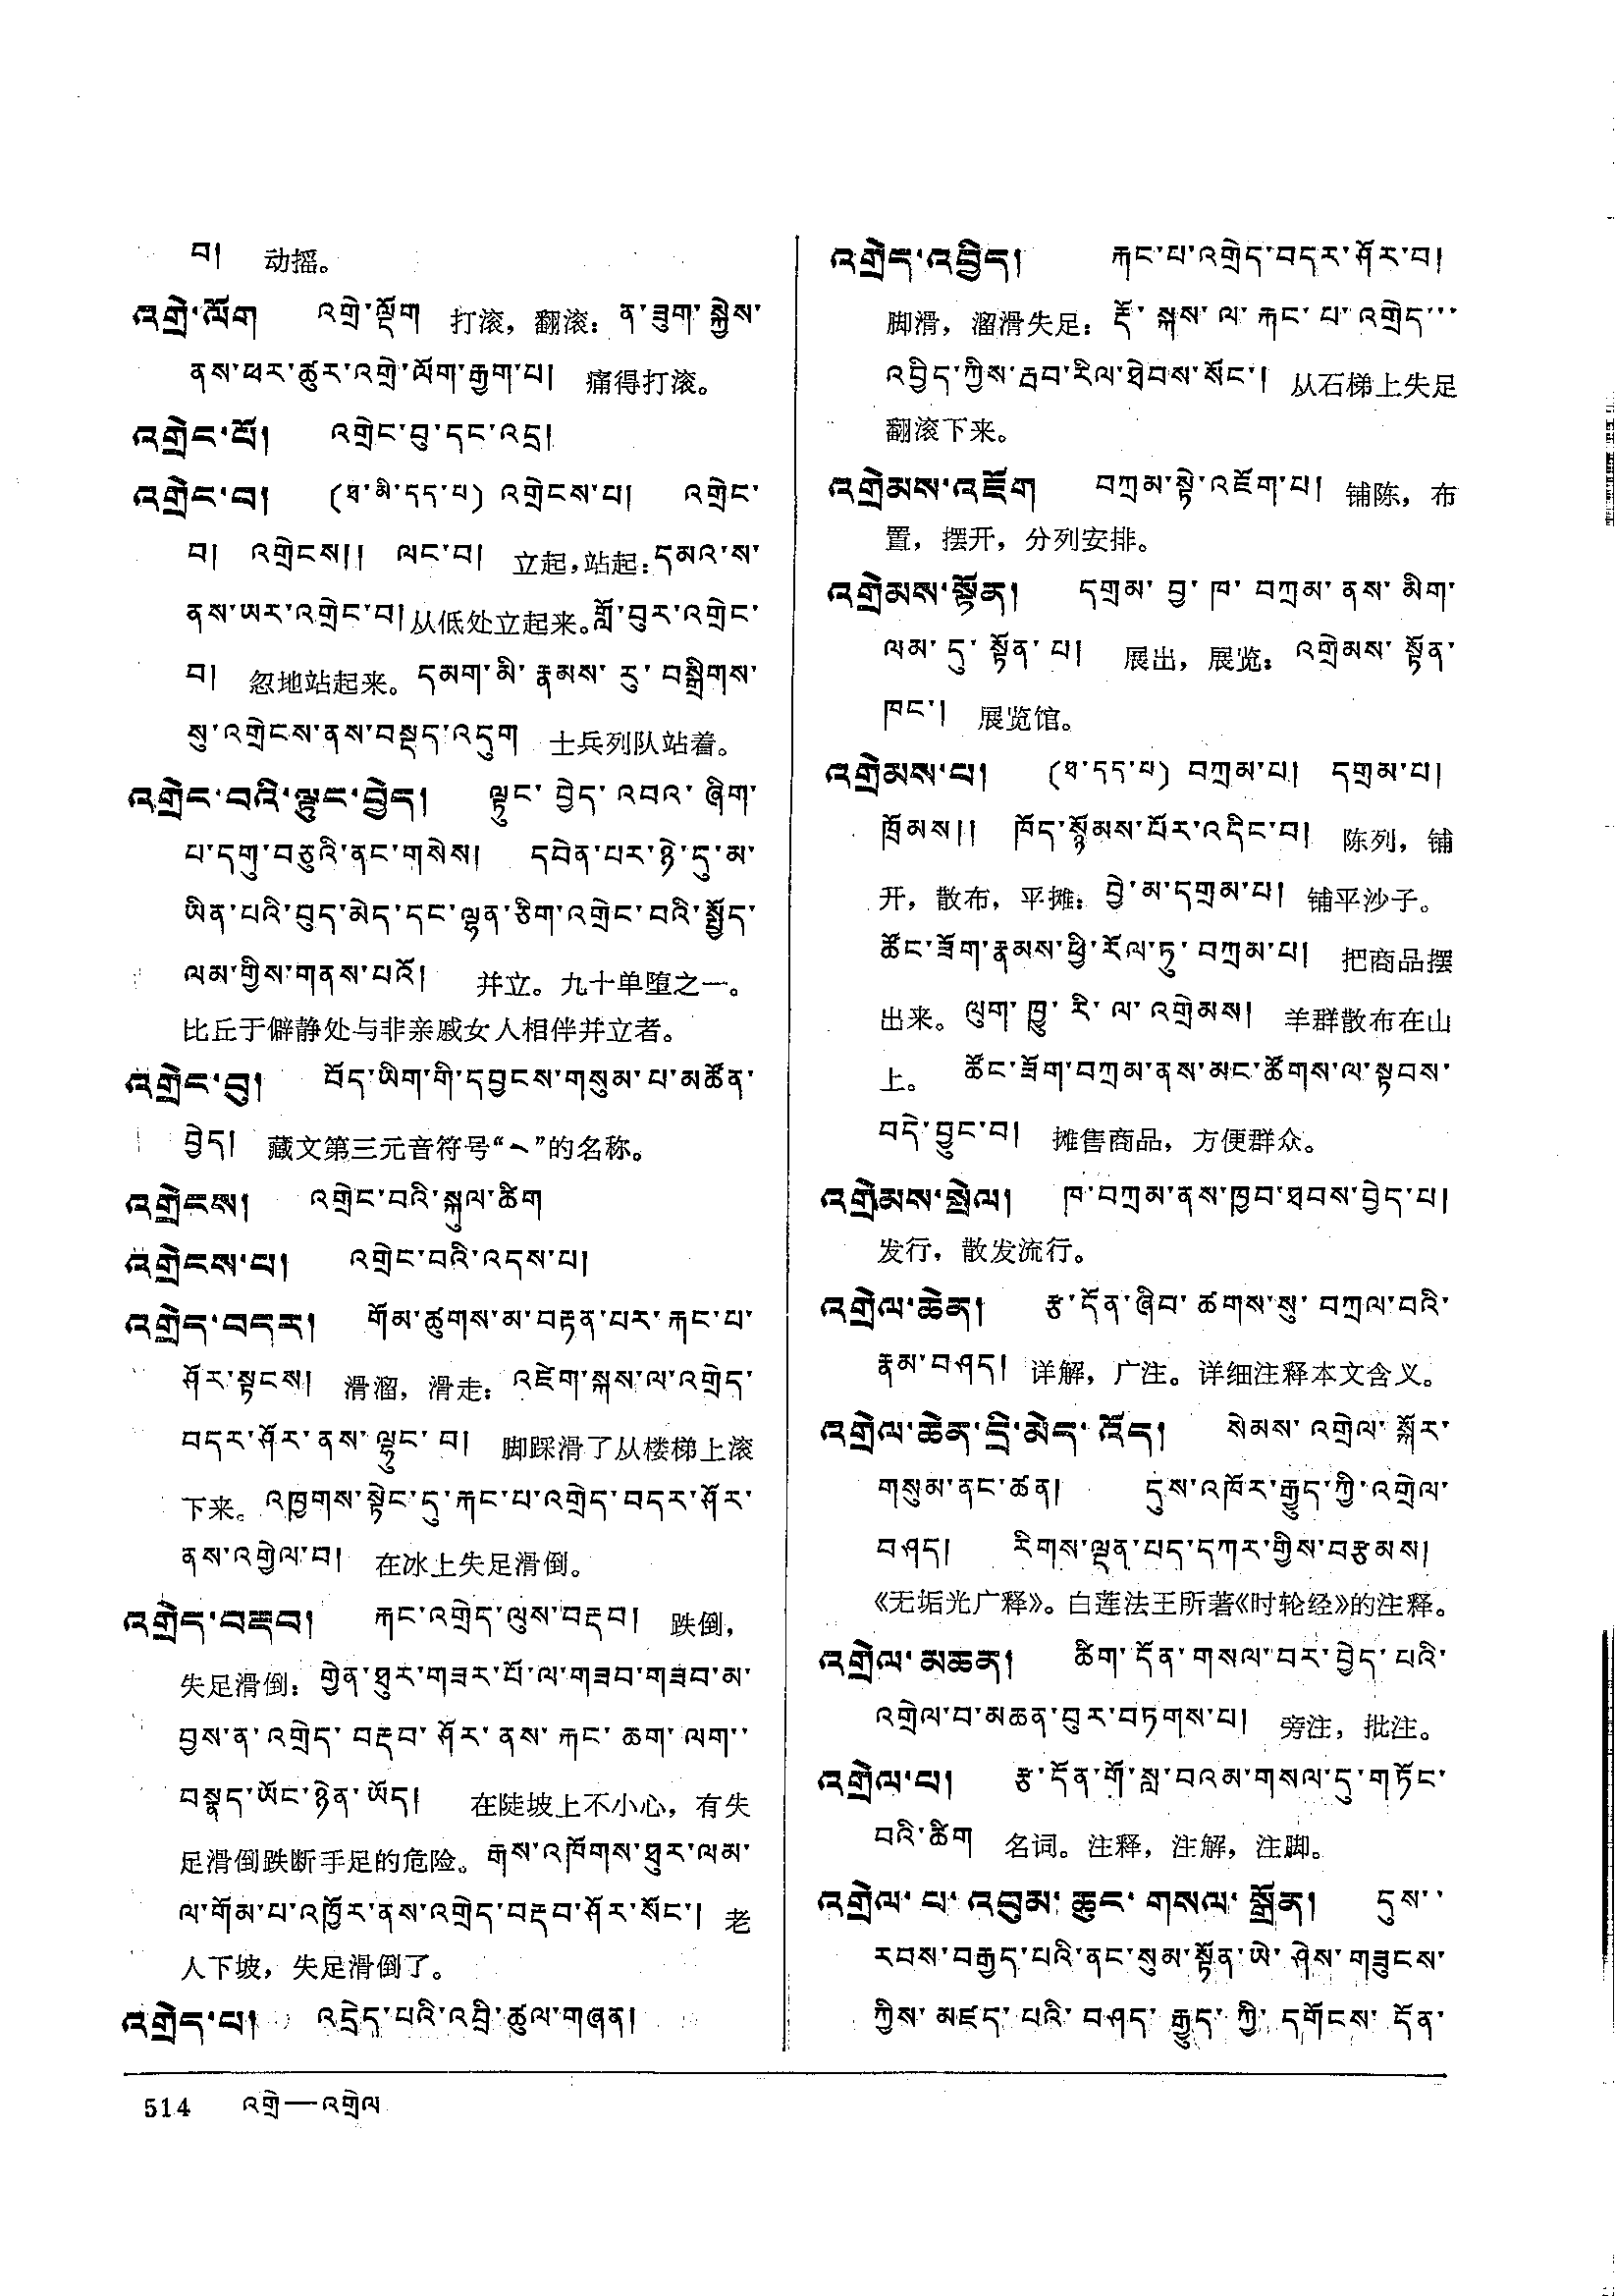 བ། 动摇。
འགྲེ་ལོག འགྲེ་ལྡོག 打滚，翻滚：ན་ཟུག་སྐྱེས་
ནས་ཕར་ཚུར་འགྲེ་ལོག་རྒྱག་པ། 痛得打滚。
འགྲེང་པོ། འགྲེང་བུ་དང་འདྲ།
འགྲེང་བ། (ཐ་མི་དད་པ) འགྲེངས་པ། འགྲེང་
བ། འགྲེངས།། ལང་བ། 立起，站起：དམའ་ས་
ནས་ཡར་འགྲེང་བ། 从低处立起来。གློ་བུར་འགྲེང་
བ། 忽地站起来。དམག་མི་རྣམས་རུ་བསྒྲིགས་
སུ་འགྲེངས་ནས་བསྡད་འདུག 士兵列队站着。
འགྲེང་བའི་ལྟུང་བྱེད། ལྟུང་བྱེད་འབའ་ཞིག་
པ་དགུ་བཅུའི་ནང་གསེས། དབེན་པར་ཉེ་དུ་མ་
ཡིན་པའི་བུད་མེད་དང་ལྷན་ཅིག་འགྲེང་བའི་སྤྱོད་
ལམ་གྱིས་གནས་པའོ། 并立。九十单堕之一。
比丘于僻静处与非亲戚女人相伴并立者。
འགྲེང་བུ། བོད་ཡིག་གི་དབྱངས་གསུམ་པ་མཚོན་
བྱེད། 藏文第三元音符号“ ེ”的名称。
འགྲེངས། འགྲེང་བའི་སྐུལ་ཚིག
འགྲེངས་པ། འགྲེང་བའི་འདས་པ།
འགྲེད་བདར། གོམ་ཚུགས་མ་བརྟན་པར་རྐང་པ་
ཤོར་སྟངས། 滑溜，滑走：འཛེག་སྐས་ལ་འགྲེད་
བདར་ཤོར་ནས་ལྷུང་བ། 脚踩滑了从楼梯上滚
下来。འཁྱགས་སྟེང་དུ་རྐང་པ་འགྲེད་བདར་ཤོར་
ནས་འགྱེལ་བ། 在冰上失足滑倒。
འགྲེད་བརྡབ། རྐང་འགྲེད་ལུས་བརྡབ། 跌倒，
失足滑倒：གྱེན་ཐུར་གཟར་པོ་ལ་གཟབ་གཟབ་མ་
བྱས་ན་འགྲེད་བརྡབ་ཤོར་ནས་རྐང་ཆག་ལག་
བསྣད་ཡོང་ཉེན་ཡོད། 在陡坡上不小心，有失
足滑倒跌断手足的危险。རྒས་འཁོགས་ཐུར་ལམ་
ལ་གོམ་པ་འཁྱོར་ནས་འགྲེད་བརྡབ་ཤོར་སོང་། 老
人下坡，失足滑倒了。
འགྲེད་པ། འདྲེད་པའི་འབྲི་ཚུལ་གཞན།
འགྲེད་འབྱིད། རྐང་པ་འགྲེད་བདར་ཤོར་བ།
脚滑，溜滑失足：རྡོ་སྐས་ལ་རྐང་པ་འགྲེད་
འབྱིད་ཀྱིས་རྦབ་རིལ་ཐེབས་སོང་། 从石梯上失足
翻滚下来。
འགྲེམས་འཇོག བཀྲམ་སྟེ་འཇོག་པ། 铺陈，布
置，摆开，分列安排。
འགྲེམས་སྟོན། དགྲམ་བྱ་ཁ་བཀྲམ་ནས་མིག་
ལམ་དུ་སྟོན་པ། 展出，展览：འགྲེམས་སྟོན་
ཁང་། 展览馆。
འགྲེམས་པ། (ཐ་དད་པ) བཀྲམ་པ། དགྲམ་པ།
ཁྲོམས།། ཁོད་སྙོམས་པོར་འདིང་བ། 陈列，铺
开，散布，平摊：བྱེ་མ་དགྲམ་པ། 铺平沙子。
ཚོང་ཟོག་རྣམས་ཕྱི་རོལ་ཏུ་བཀྲམ་པ། 把商品摆
出来。ལུག་ཁྱུ་རི་ལ་འགྲེམས། 羊群散布在山
上。 ཚོང་ཟོག་བཀྲམ་ནས་མང་ཚོགས་ལ་སྟབས་
བདེ་བྱུང་བ། 摊售商品，方便群众。
འགྲེམས་སྤེལ། ཁ་བཀྲམ་ནས་ཁྱབ་ཐབས་བྱེད་པ།
发行，散发流行。
འགྲེལ་ཆེན། རྩ་དོན་ཞིབ་ཚགས་སུ་བཀྲལ་བའི་
རྣམ་བཤད། 详解，广注。详细注释本文含义。
འགྲེལ་ཆེན་དྲི་མེད་འོད། སེམས་འགྲེལ་སྐོར་
གསུམ་ནང་ཚན། དུས་འཁོར་རྒྱུད་ཀྱི་འགྲེལ་
བཤད། རིགས་ལྡན་པད་དཀར་གྱིས་བརྩམས།
《无垢光广释》。白莲法王所著《时轮经》的注释。
འགྲེལ་མཆན། ཚིག་དོན་གསལ་བར་བྱེད་པའི་
འགྲེལ་བ་མཆན་བུར་བཏགས་པ། 旁注，批注。
འགྲེལ་པ། རྩ་དོན་གོ་སླ་བའམ་གསལ་དུ་གཏོང་
བའི་ཚིག 名词。注释，注解，注脚。
འགྲེལ་པ་འབུམ་ཆུང་གསལ་སྒྲོན། དུས་
རབས་བརྒྱད་པའི་ནང་སུམ་སྟོན་ཡེ་ཤེས་གཟུངས་
ཀྱིས་མཛད་པའི་བཤད་རྒྱུད་ཀྱི་དགོངས་དོན་
514 འགྲེ—འགྲེལ